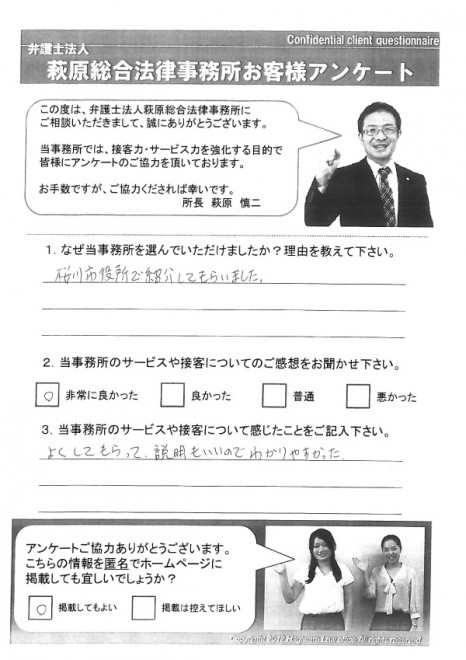 Confidential client questionnaire
弁護士法人
萩原総合法律事務所お客様アンケート
この度は、弁護士法人萩原総合法律事務所に
ご相談いただきまして、誠にありがとうございます。
当事務所では、接客力・サービス力を強化する目的で
皆様にアンケートのご協力を頂いております。
お手数ですが、ご協力くだされば幸いです。
所長 萩原 慎二
1. なぜ当事務所を選んでいただけましたか？理由を教えて下さい。
桜川市役所で紹介してもらいました。
2. 当事務所のサービスや接客についてのご感想をお聞かせ下さい。
○ 非常に良かった 良かった 普通 悪かった
3. 当事務所のサービスや接客について感じたことをご記入下さい。
よくしてもらって、説明もいいのでわかりやすかった。
アンケートご協力ありがとうございます。
こちらの情報を匿名でホームページに
掲載しても宜しいでしょうか？
○ 掲載してもよい 掲載は控えてほしい
Copyright 2012 Hagiwara Law office All rights reserved.